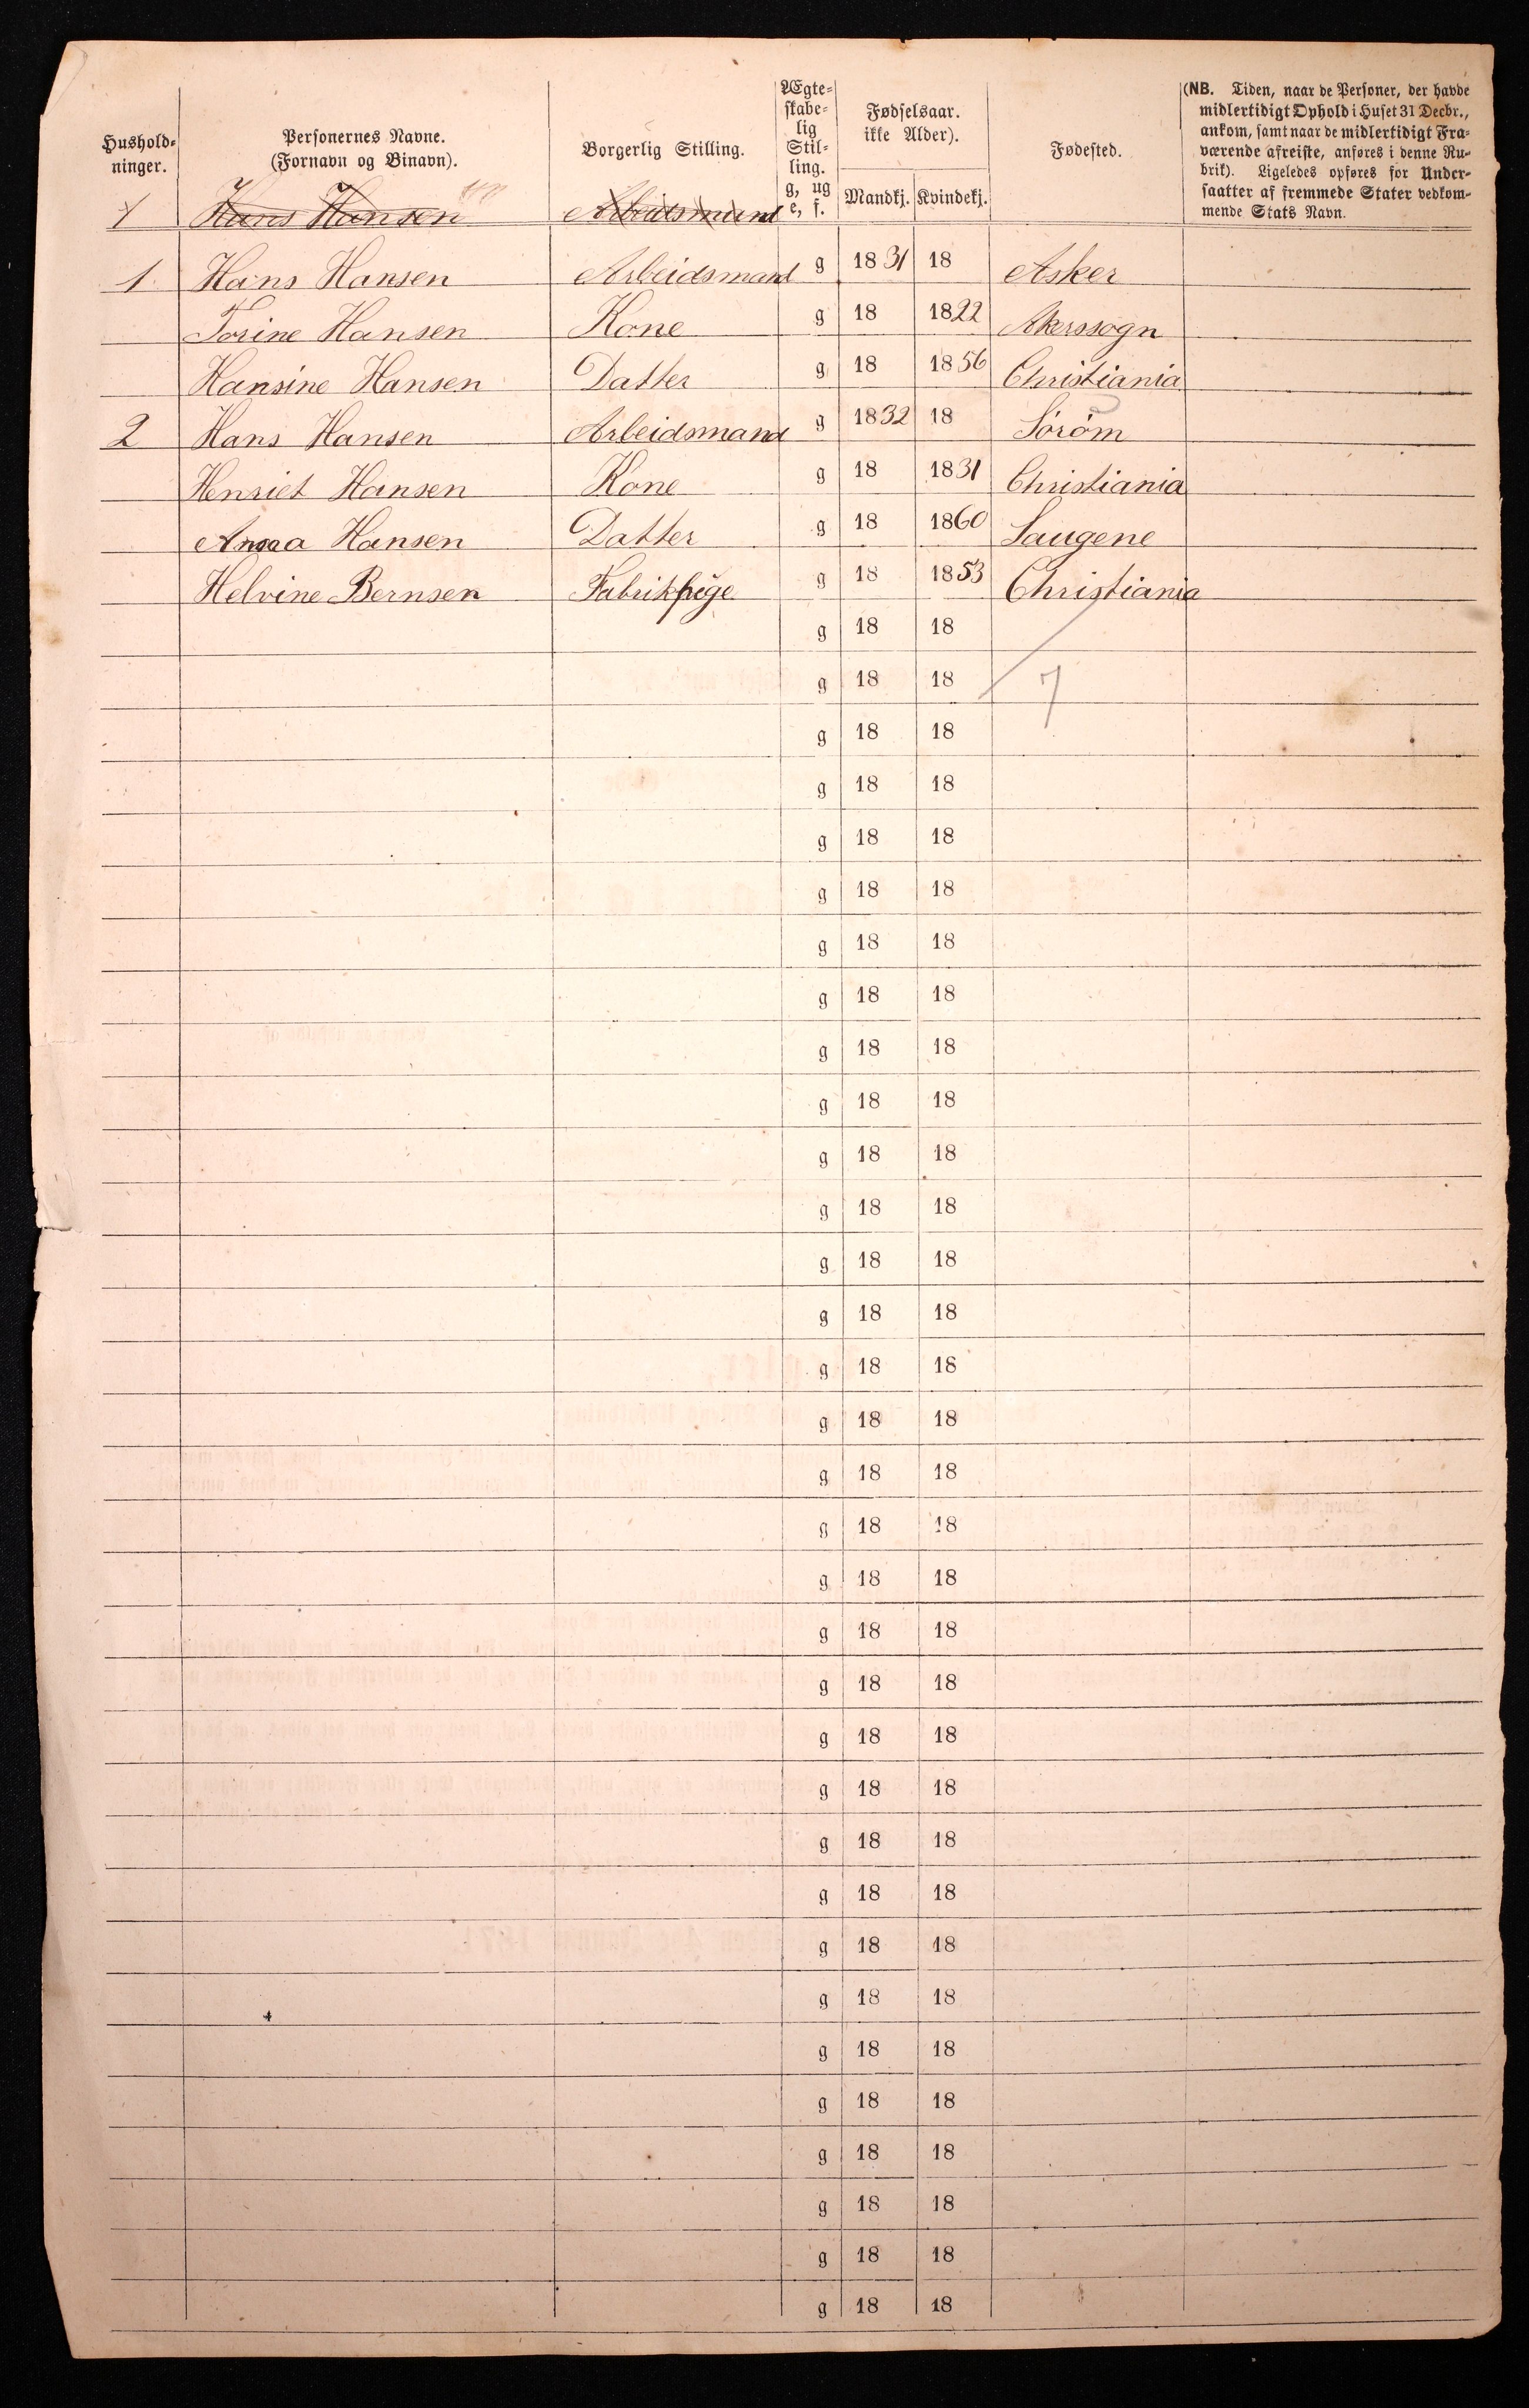 Hushold-
ninger.
Personernes Navne.
(Fornavn og Binavn).
Borgerlig Stilling.
Ægte-
skabe-
lig
Stil-
ling.
g, ug
e, f.
Fødselsaar.
ikke Alder).
Mandkj. Kvindekj.
Fødested.
(NB. Tiden, naar de Personer, der havde
midlertidigt Ophold i Huset 31 Decbr.,
ankom, samt naar de midlertidigt Fra-
værende afreiste, anføres i denne Ru-
brik). Ligeledes opføres for Under-
saatter af fremmede Stater vedkom-
mende Stats Navn.
1 Hans Hansen Arbeidsmand
1 Hans Hansen Arbeidsmand g 1831 18 Asker
Torine Hansen Kone g 18 1822 Akerssogn
Hansine Hansen Datter g 18 1856 Christiania
2 Hans Hansen Arbeidsmand g 1832 18 Sørøm
Henriet Hansen Kone g 18 1831 Christiania
Anna Hansen Datter g 18 1860 Laugene
Helvine Bernsen Fabrikpige g 18 1853 Christiania
g 18 18
g 18 18 7
g 18 18
g 18 18
g 18 18
g 18 18
g 18 18
g 18 18
g 18 18
g 18 18
g 18 18
g 18 18
g 18 18
g 18 18
g 18 18
g 18 18
g 18 18
g 18 18
g 18 18
g 18 18
g 18 18
g 18 18
g 18 18
g 18 18
g 18 18
g 18 18
g 18 18
g 18 18
g 18 18
g 18 18
g 18 18
g 18 18
g 18 18